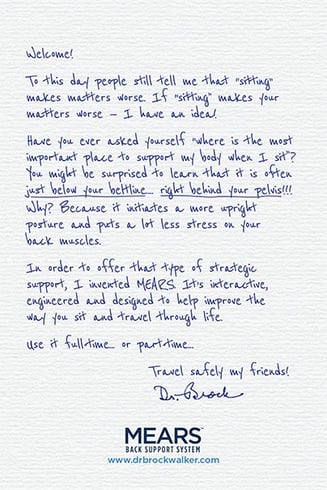 Welcome!
To this day people still tell me that "sitting"
makes matters worse. If "sitting" makes your
matters worse – I have an idea!
Have you ever asked yourself "where is the most
important place to support my body when I sit"?
You might be surprised to learn that it is often
just below your beltline... right behind your pelvis!!!
Why? Because it initiates a more upright
posture and puts a lot less stress on your
back muscles.
In order to offer that type of strategic
support, I invented MEARS. It's interactive,
engineered and designed to help improve the
way you sit and travel through life.
Use it full-time... or part-time...
Travel safely my friends!
Dr. Brock
MEARS™
BACK SUPPORT SYSTEM
www.drbrockwalker.com